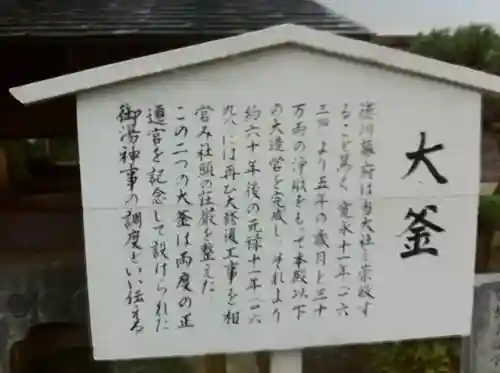 大釜
徳川幕府は当大社を崇敬す
ること篤く寛永十一年(一六
三四)より五年の歳月と三十
万両の浄財をもって本殿以下
の大造営を完成し、それより
約六十年後の元禄十一年(一六
九八)には再び大修復工事を相
営み社頭の荘厳を整えた
この二つの大釜は両度の正
遷宮を記念して設けられた
御湯神事の調度といい伝える